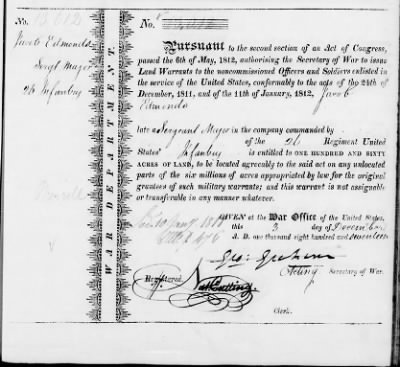 No.
Jacob Edmonds
Sergt Major
26 Infantry
WAR DEPARTMENT.
No.
Pursuant to the second section of an Act of Congress,
passed the 6th of May, 1812, authorising the Secretary of War to issue
Land Warrants to the noncommissioned Officers and Soldiers enlisted in
the service of the United States, conformably to the acts of the 24th of
December, 1811, and of the 11th of January, 1812, Jacob
Edmonds
late a Sergeant Major in the company commanded by
of the 26 Regiment United
States' Infantry is entitled to ONE HUNDRED AND SIXTY
ACRES OF LAND, to be located agreeably to the said act on any unlocated
parts of the six millions of acres appropriated by law for the original
grantees of such military warrants; and this warrant is not assignable
or transferable in any manner whatever.
GIVEN at the War Office of the United States,
this 3 day of December
A. D. one thousand eight hundred and seventeen
Geo: Graham
Acting Secretary of War.
Registered
Nath Cutting.
Clerk.